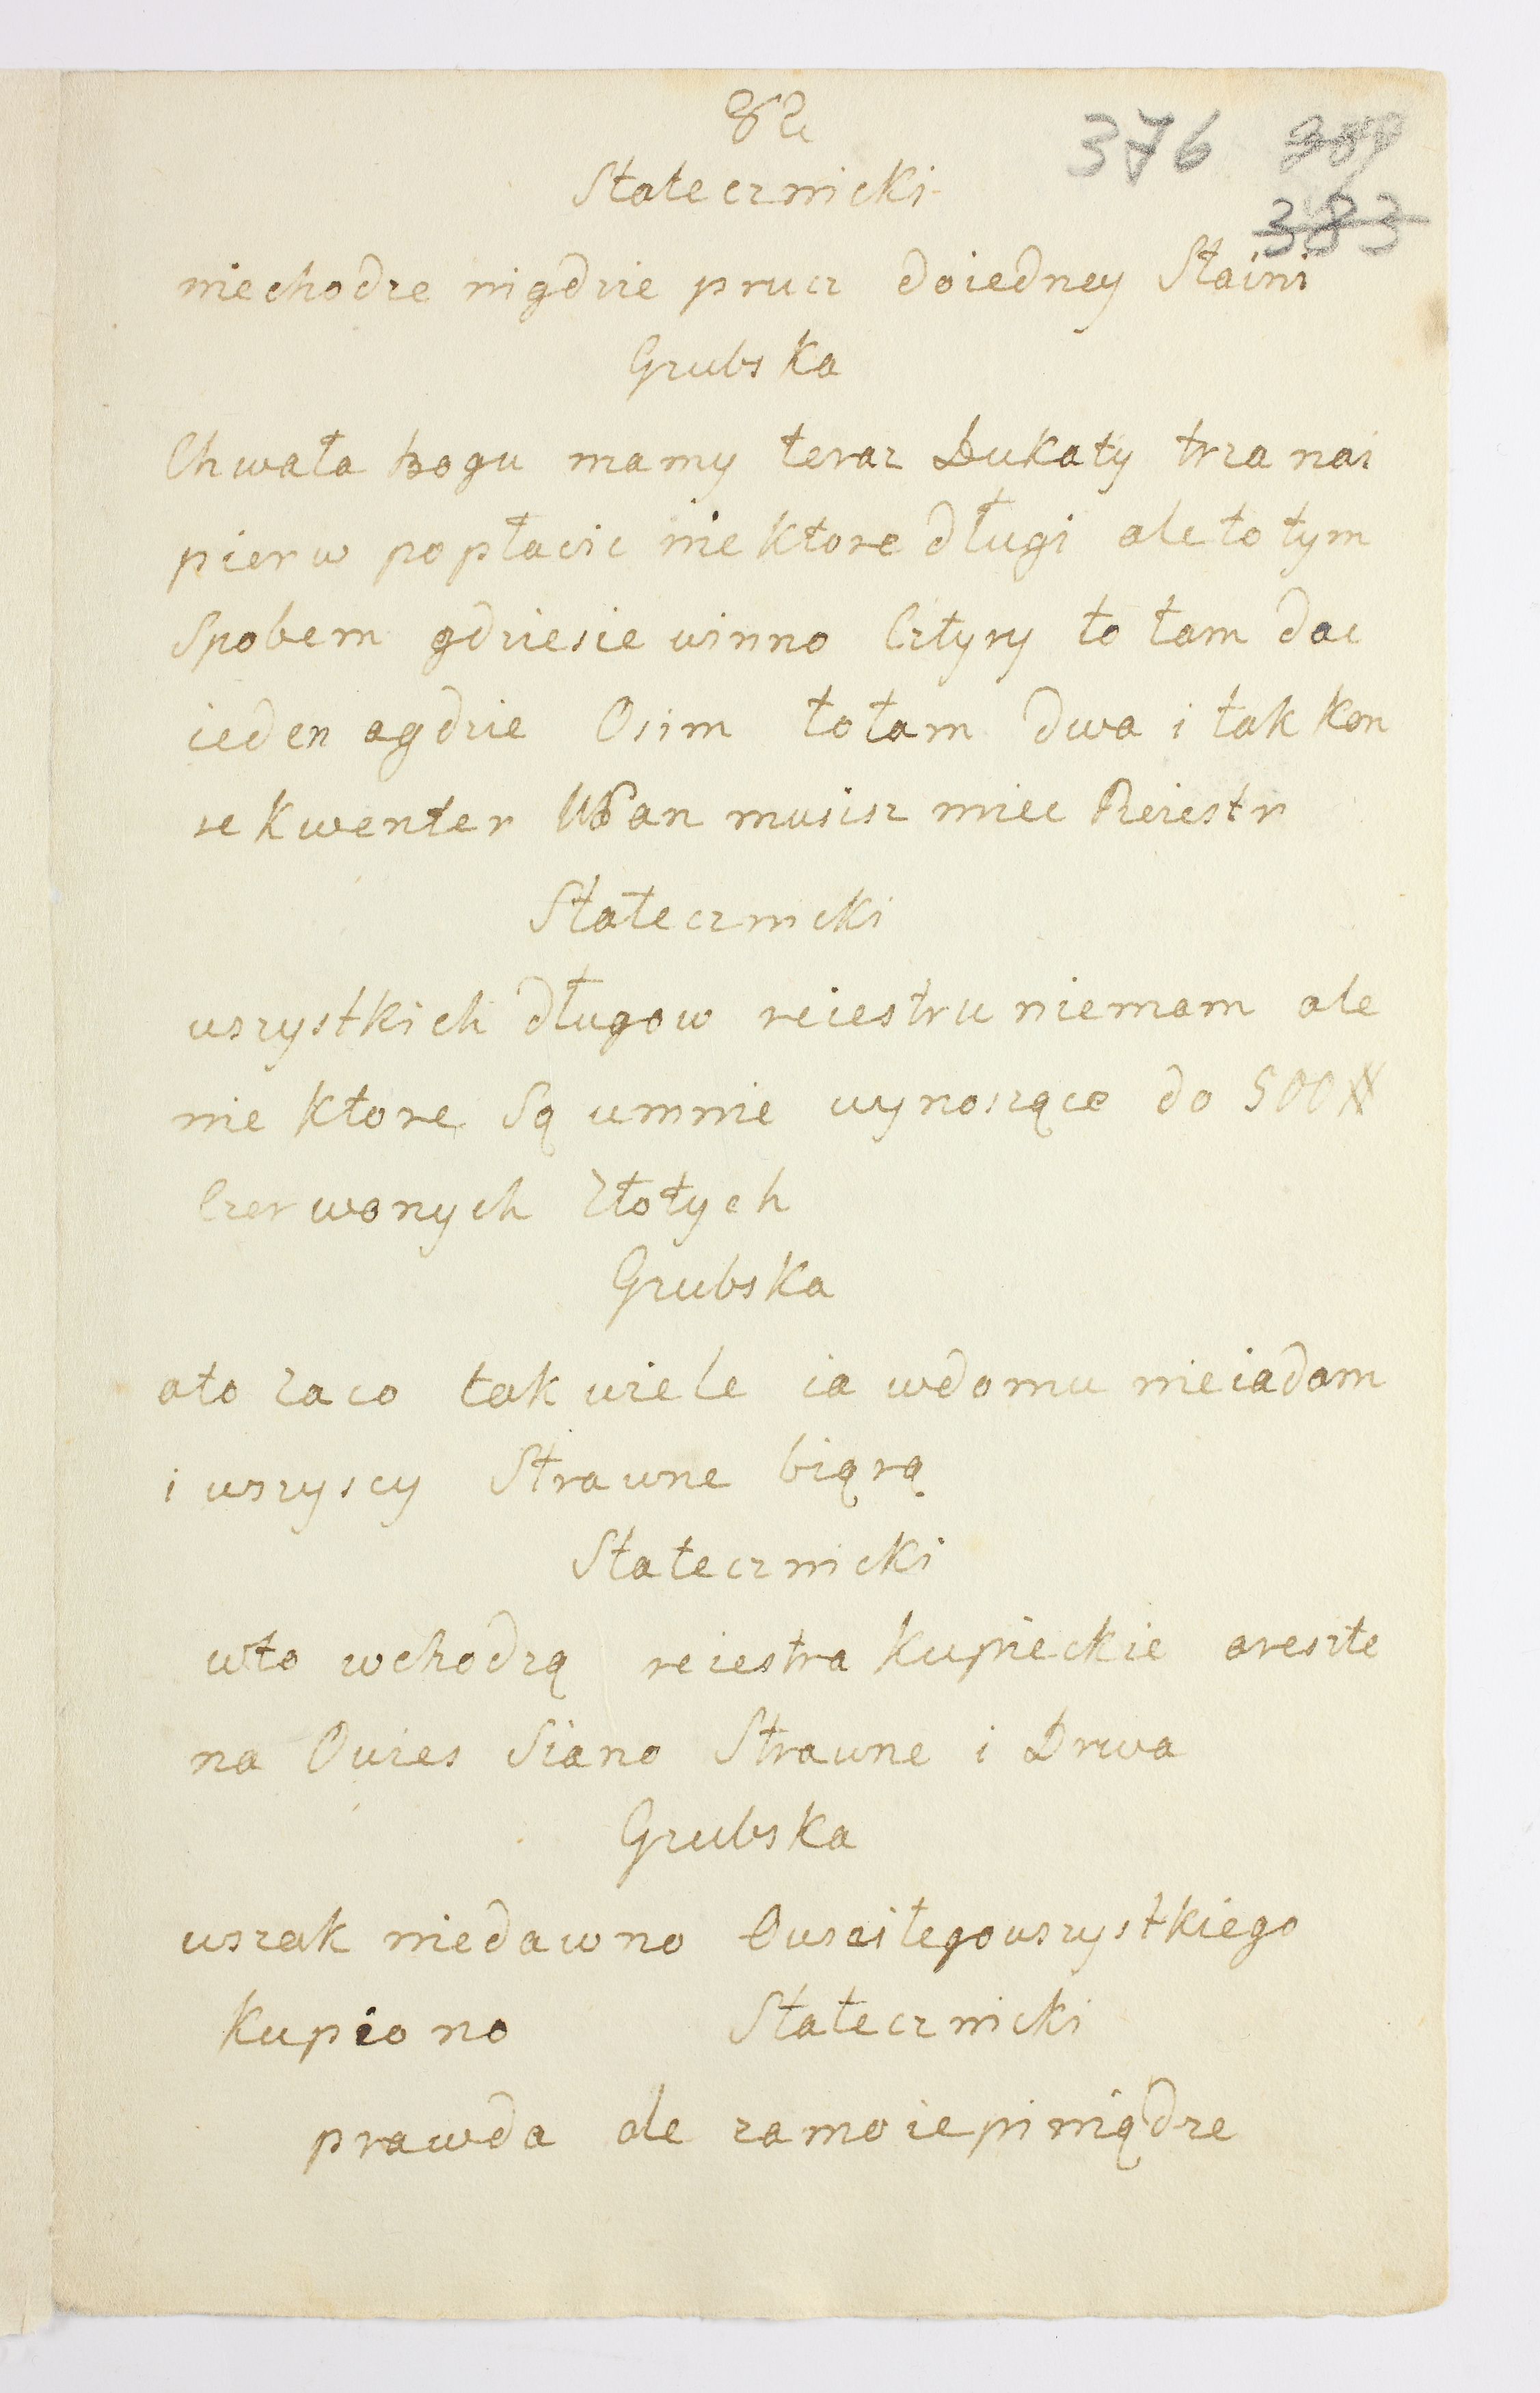 82
376
383
Statecznicki
niechodze nigdzie prucz doiedney Staini
Grubska
Chwała bogu mamy teraz Dukaty trza nai
pierw popłacic niektore długi ale to tym
Spobem gdziesie winno Cztyry to tam dac
ieden agdzie Osim totam dwa i tak kon
sekwenter WPan musisz miec Reiestr
Statecznicki
wszystkich długow reiestru niemam ale
nie ktore Są umnie wynoszące do 500 #
Czerwonych Złotych
Grubska
ato zaco tak wiele ia wdomu nieiadam
i wszyscy Strawne biąrą
Statecznicki
wto wchodzą reiestra kupieckie aresztę
na Owies Siano Strawne i Drwa
Grubska
wszak niedawno Owsaitegowszystkiego
kupiono
Statecznicki
prawda ale zamoiepiniądze